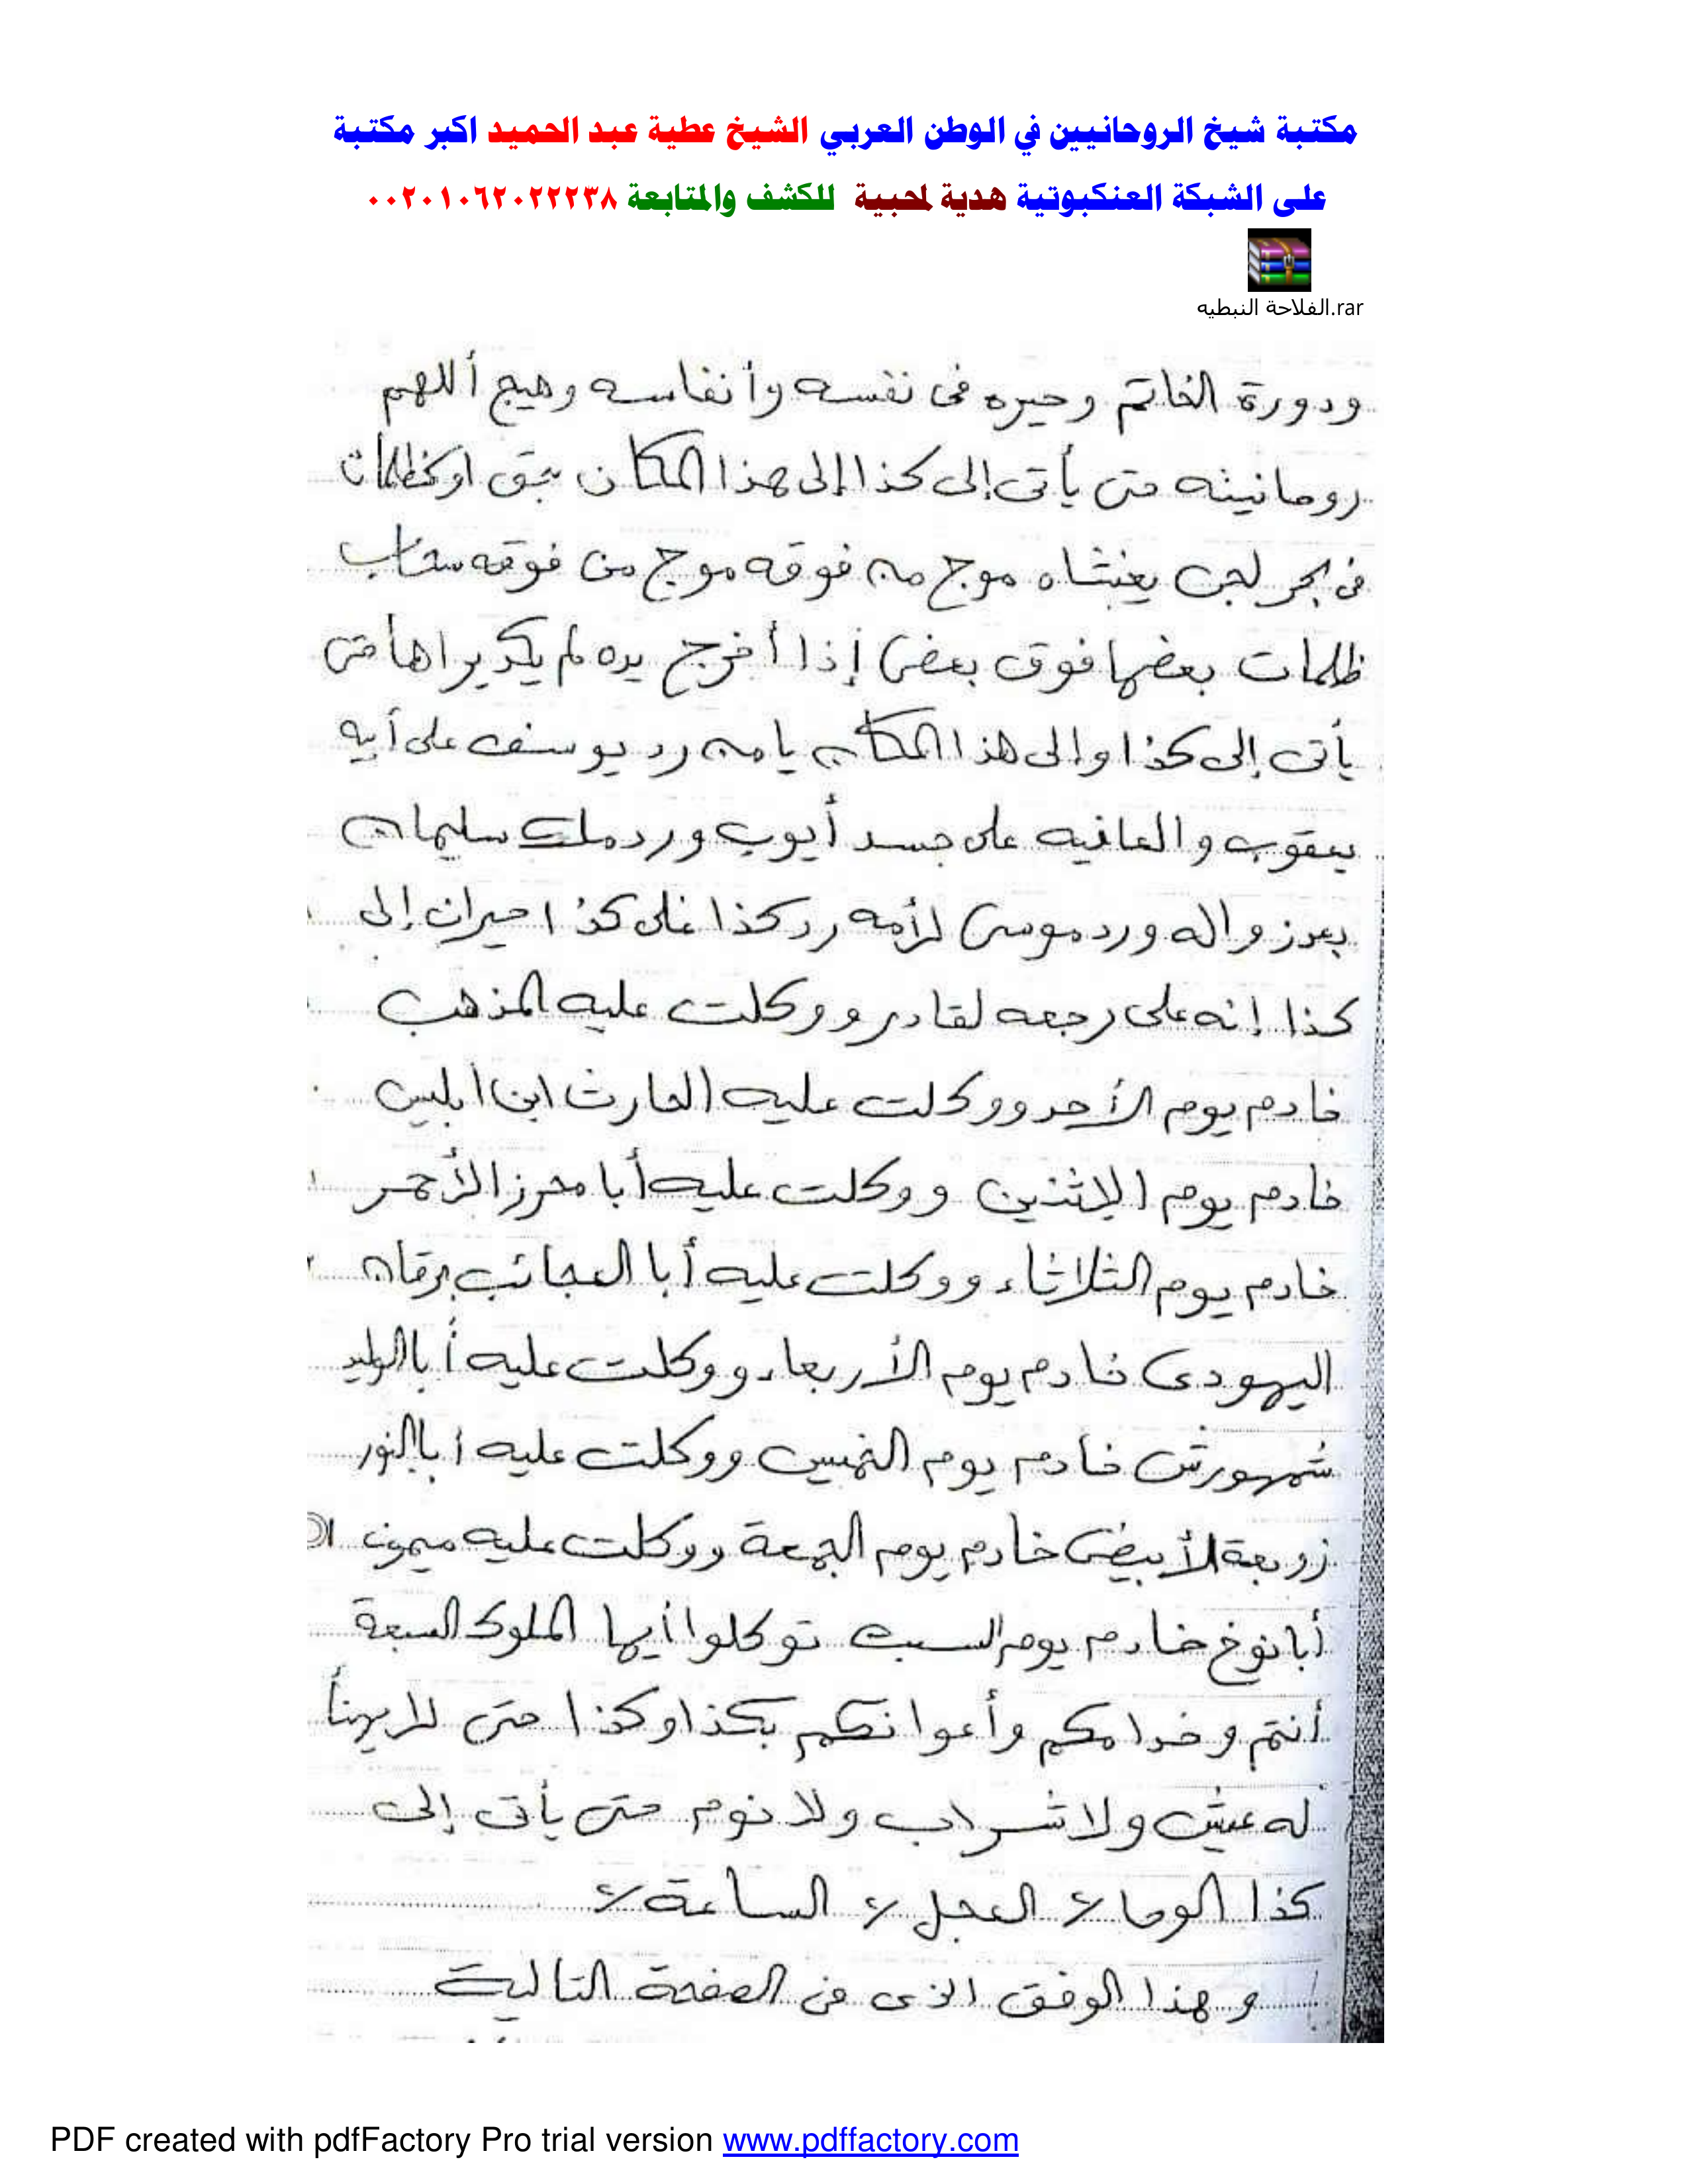 مكتبة شيخ الروحانيين في الوطن العربي الشيخ عطية عبد الحميد اكبر مكتبة
على الشبكة العنكبوتية هدية لمحبية للكشف والمتابعة ٠٠٢٠١٠٦٢٠٢٢٢٣٨
الفلاحة النبطيه.rar
ودورة الخاتم وحيره فى نفسه وأنفاسه وهيج أللهم
روحانيته حتى يأتى إلى كذا إلى هذا المكان بحق اوكظلمات
فى بحر لجى يغشاه موج من فوقه موج من فوقه سحاب
ظلمات بعضها فوق بعض إذا أخرج يده لم يكد يراها حتى
يأتى إلى كذا وإلى هذا المكان يا من رد يوسف على أبيه
يعقوب والعافيه على جسد أيوب ورد ملك سليمان
بعد زواله ورد موسى لأمه رد كذا على كذا حيران إلى
كذا إنه على رجعه لقادر ووكلت عليه المذهب
خادم يوم الأحد ووكلت عليه الحارث ابن ابليس
خادم يوم الإثنين ووكلت عليه أبا محرز الأحمر
خادم يوم الثلاثاء ووكلت عليه أبا العجائب برقان
اليهودى خادم يوم الأربعاء ووكلت عليه أبا الوليد
شمهورش خادم يوم الخميس ووكلت عليه أبا النور
زوبعة الأبيض خادم يوم الجمعة ووكلت عليه ميمون
أبا نوخ خادم يوم السبت توكلوا أيها الملوك السبعة
أنتم وخدامكم وأعوانكم بكذا وكذا حتى لا يهنأ
له عيش ولا شراب ولا نوم حتى يأتى إلى
كذا الوحا ٢ العجل ٢ الساعة ٢
وهذا الوفق الذى فى الصفحة التالية
PDF created with pdfFactory Pro trial version www.pdffactory.com